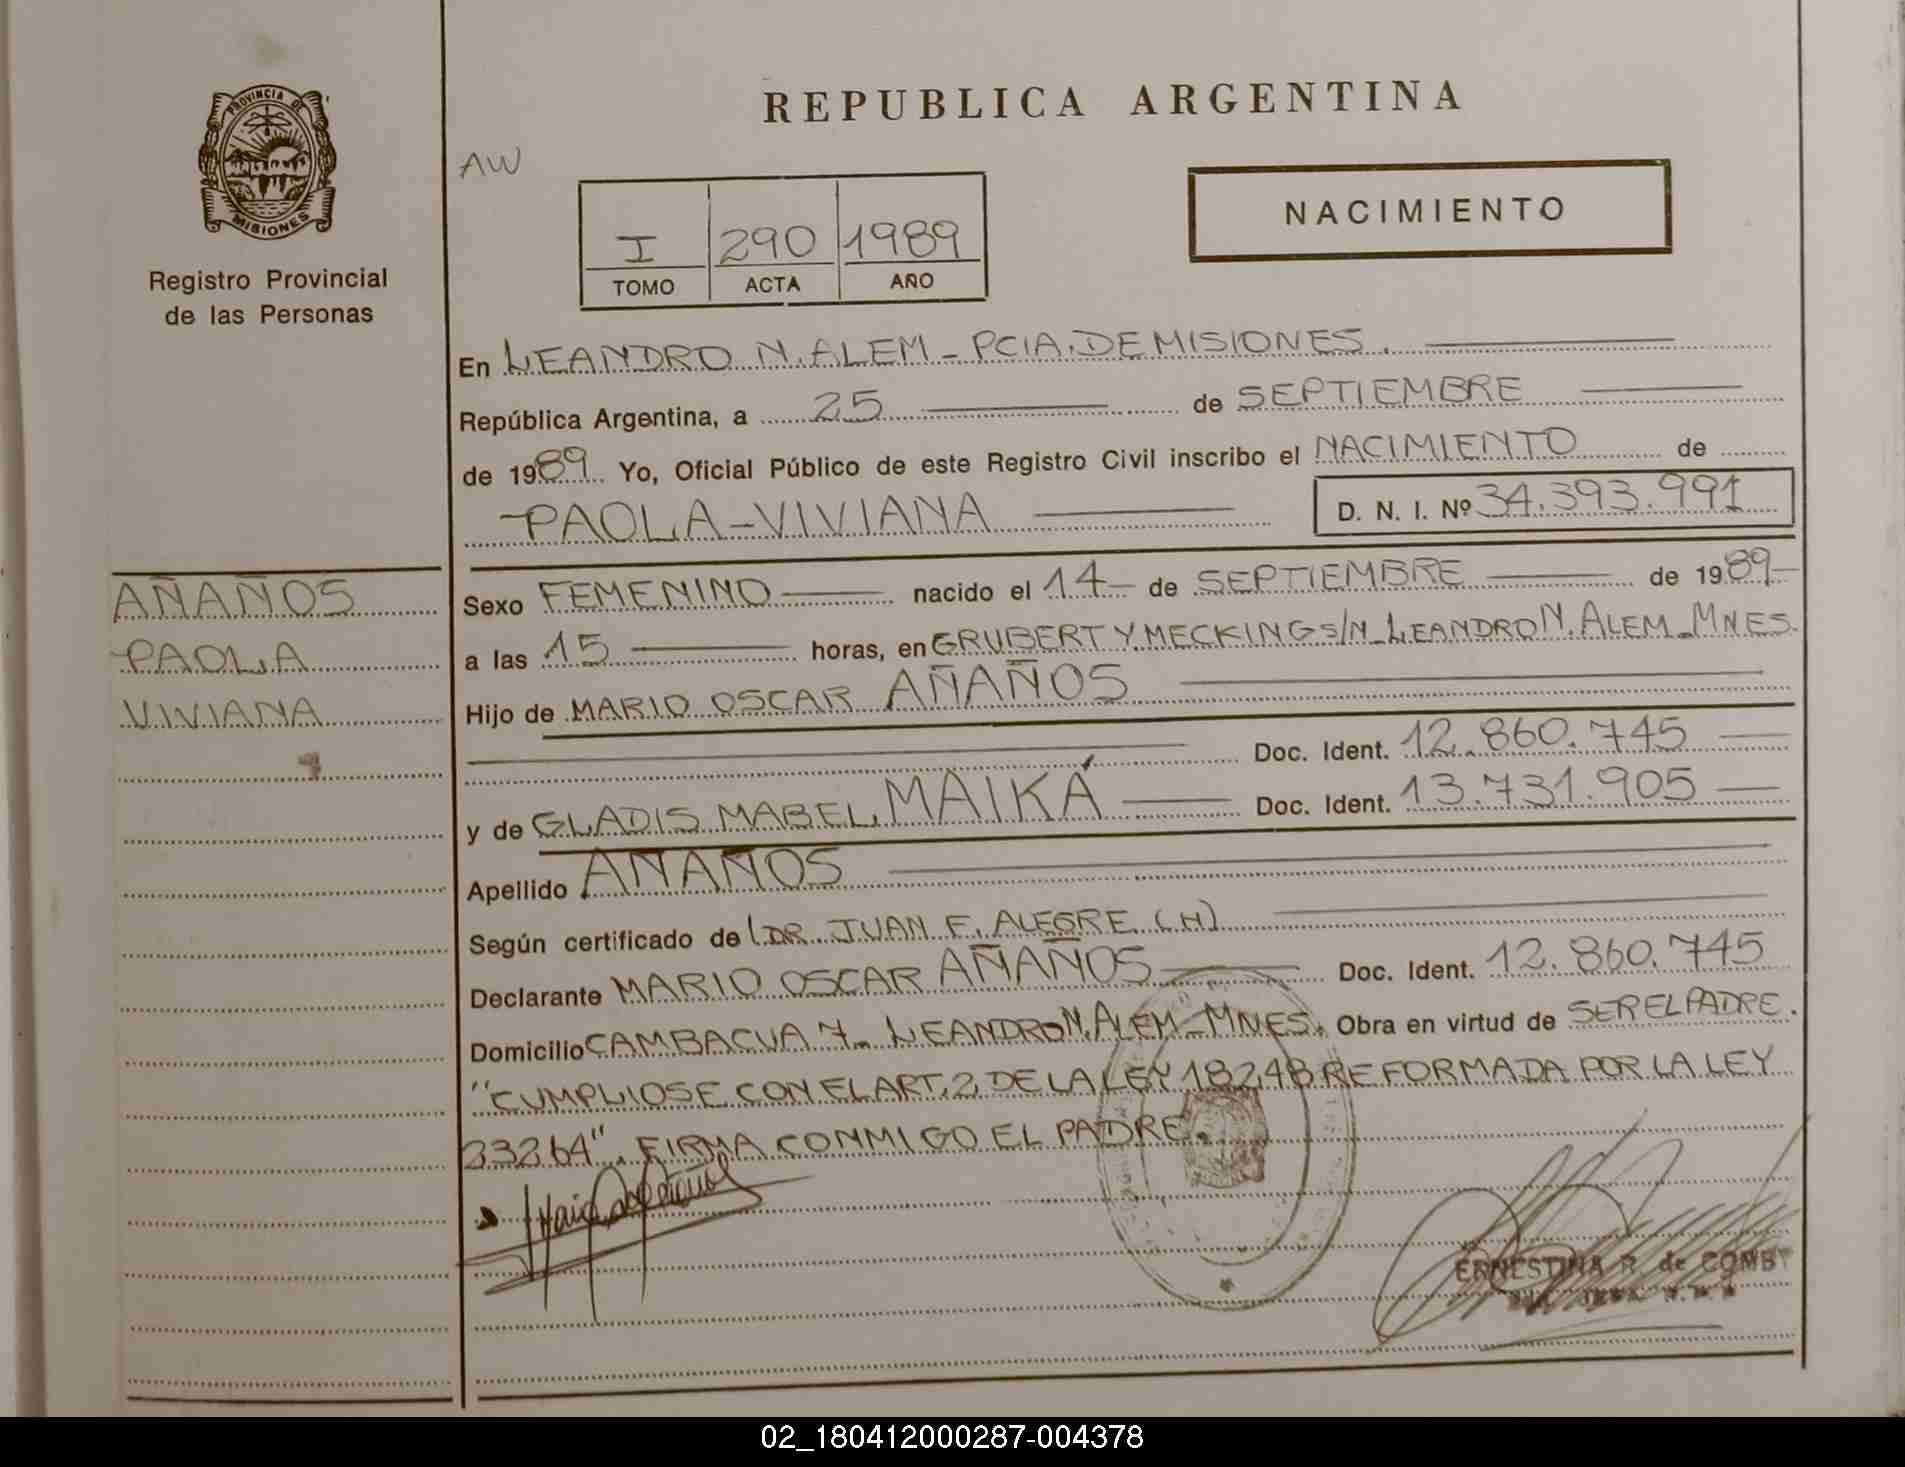 REPUBLICA ARGENTINA
PROVINCIA DE
MISIONES
Registro Provincial
de las Personas
AW
I 290 1989
TOMO ACTA AÑO
NACIMIENTO
En LEANDRO N. ALEM - PCIA. DE MISIONES.
República Argentina, a 25 de SEPTIEMBRE
de 1989 Yo, Oficial Público de este Registro Civil inscribo el NACIMIENTO de
PAOLA-VIVIANA D. N. I. Nº 34.393.991
AÑAÑOS
PAOLA
VIVIANA
Sexo FEMENINO nacido el 14 de SEPTIEMBRE de 1989
a las 15 horas, en GRUBERT Y MECKING S/N LEANDRO N. ALEM - MNES.
Hijo de MARIO OSCAR AÑAÑOS
Doc. Ident. 12.860.745
y de GLADIS MABEL MAIKÁ Doc. Ident. 13.731.905
Apellido AÑAÑOS
Según certificado de (DR. JUAN F. ALEGRE (H)
Declarante MARIO OSCAR AÑAÑOS Doc. Ident. 12.860.745
Domicilio CAMBACUA 7. LEANDRO N. ALEM - MNES. Obra en virtud de SER EL PADRE.
"CUMPLIOSE CON EL ART. 2 DE LA LEY 18248 REFORMADA POR LA LEY
23264". FIRMA CONMIGO EL PADRE.
ERNESTINA R. de COMBY
02_180412000287-004378